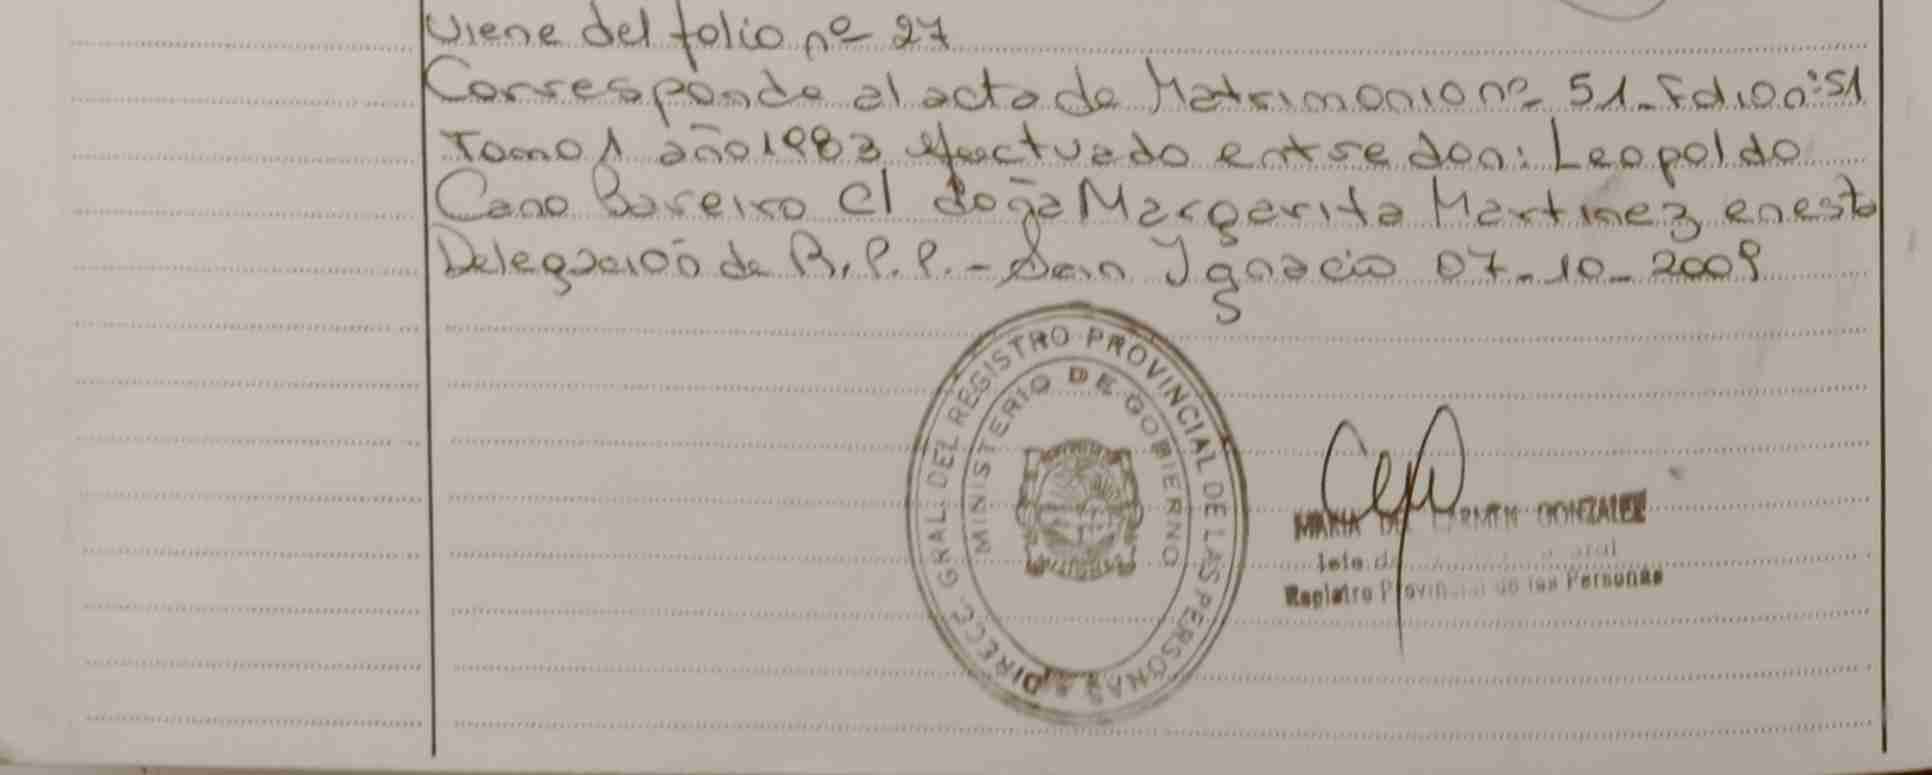 Viene del folio nº 27
Corresponde al acta de Matrimonio nº 51 - Folio nº: 51
Tomo 1 año 1983 efectuado entre don: Leopoldo
Cano Bareiro C/ doña Margarita Martinez en esta
Delegación de R.P.P. - San Ignacio 07-10-2009
DIRECC. GRAL. DEL REGISTRO PROVINCIAL DE LAS PERSONAS
MINISTERIO DE GOBIERNO
MARIA DEL CARMEN GONZALEZ
Registro Provincial de las Personas